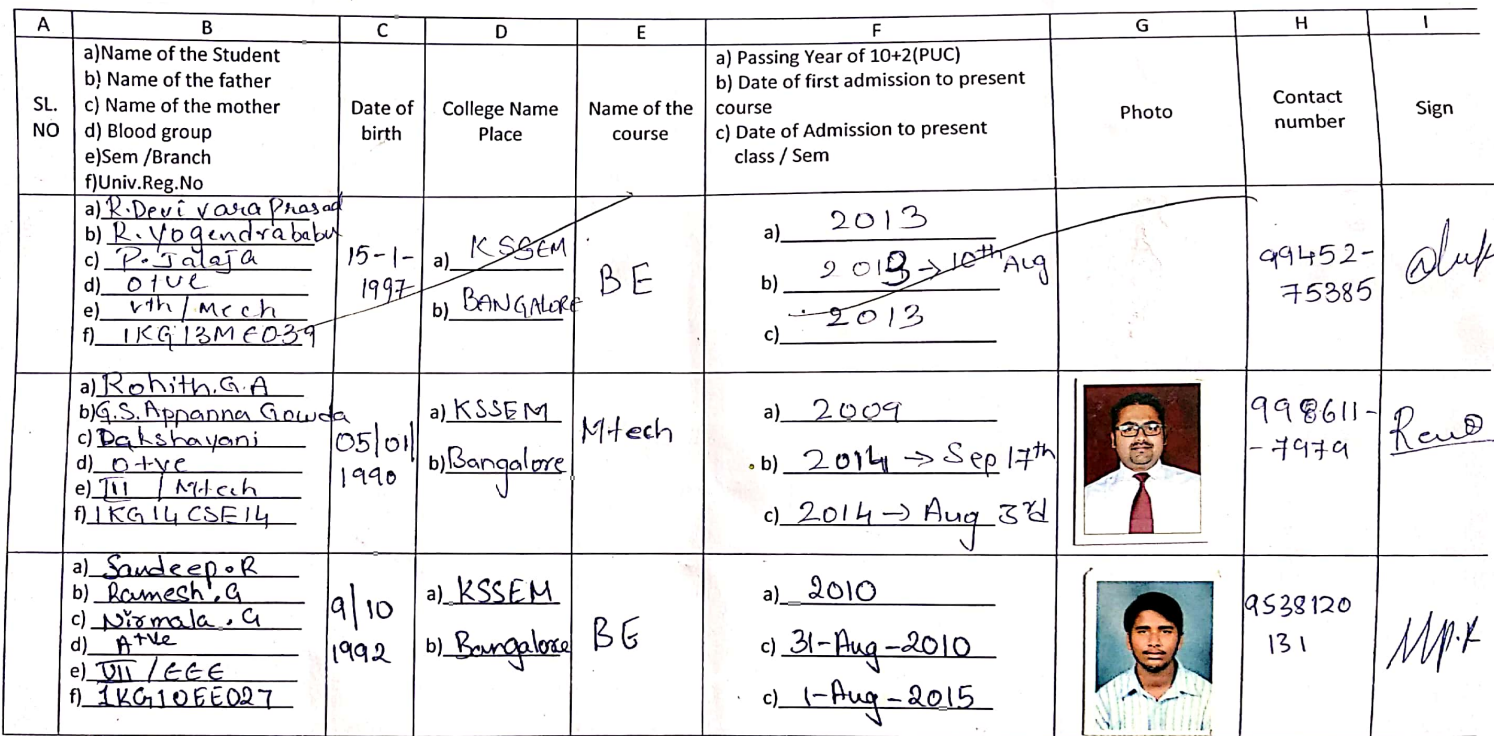 A B C D E F G H I
SL.
NO
a)Name of the Student
b) Name of the father
c) Name of the mother
d) Blood group
e)Sem /Branch
f)Univ.Reg.No
Date of
birth
College Name
Place
Name of the
course
a) Passing Year of 10+2(PUC)
b) Date of first admission to present
course
c) Date of Admission to present
class / Sem
Photo
Contact
number
Sign
a) R.Devi vara Prasad
b) R.Yogendrababu
c) P.Jalaja
d) O+ve
e) vth / Mech
f) 1KG13ME039
15-1-
1997
a) KSSEM
b) BANGALORE
BE
a) 2013
b) 2013 → 10th Aug
c) 2013
99452-
75385
a) Rohith.G.A
b)G.S.Appanna Gowda
c) Dakshayani
d) O+ve
e) III / Mtech
f) 1KG14CSE14
05/01/
1990
a) KSSEM
b) Bangalore
Mtech
a) 2009
b) 2014 → Sep 17th
c) 2014 → Aug 3rd
998611-
-7979
a) Sandeep.R
b) Ramesh.G
c) Nirmala.G
d) A+ve
e) VII / EEE
f) 1KG10EE027
9/10
1992
a) KSSEM
b) Bangalore
BE
a) 2010
c) 31-Aug-2010
c) 1-Aug-2015
9538120
131